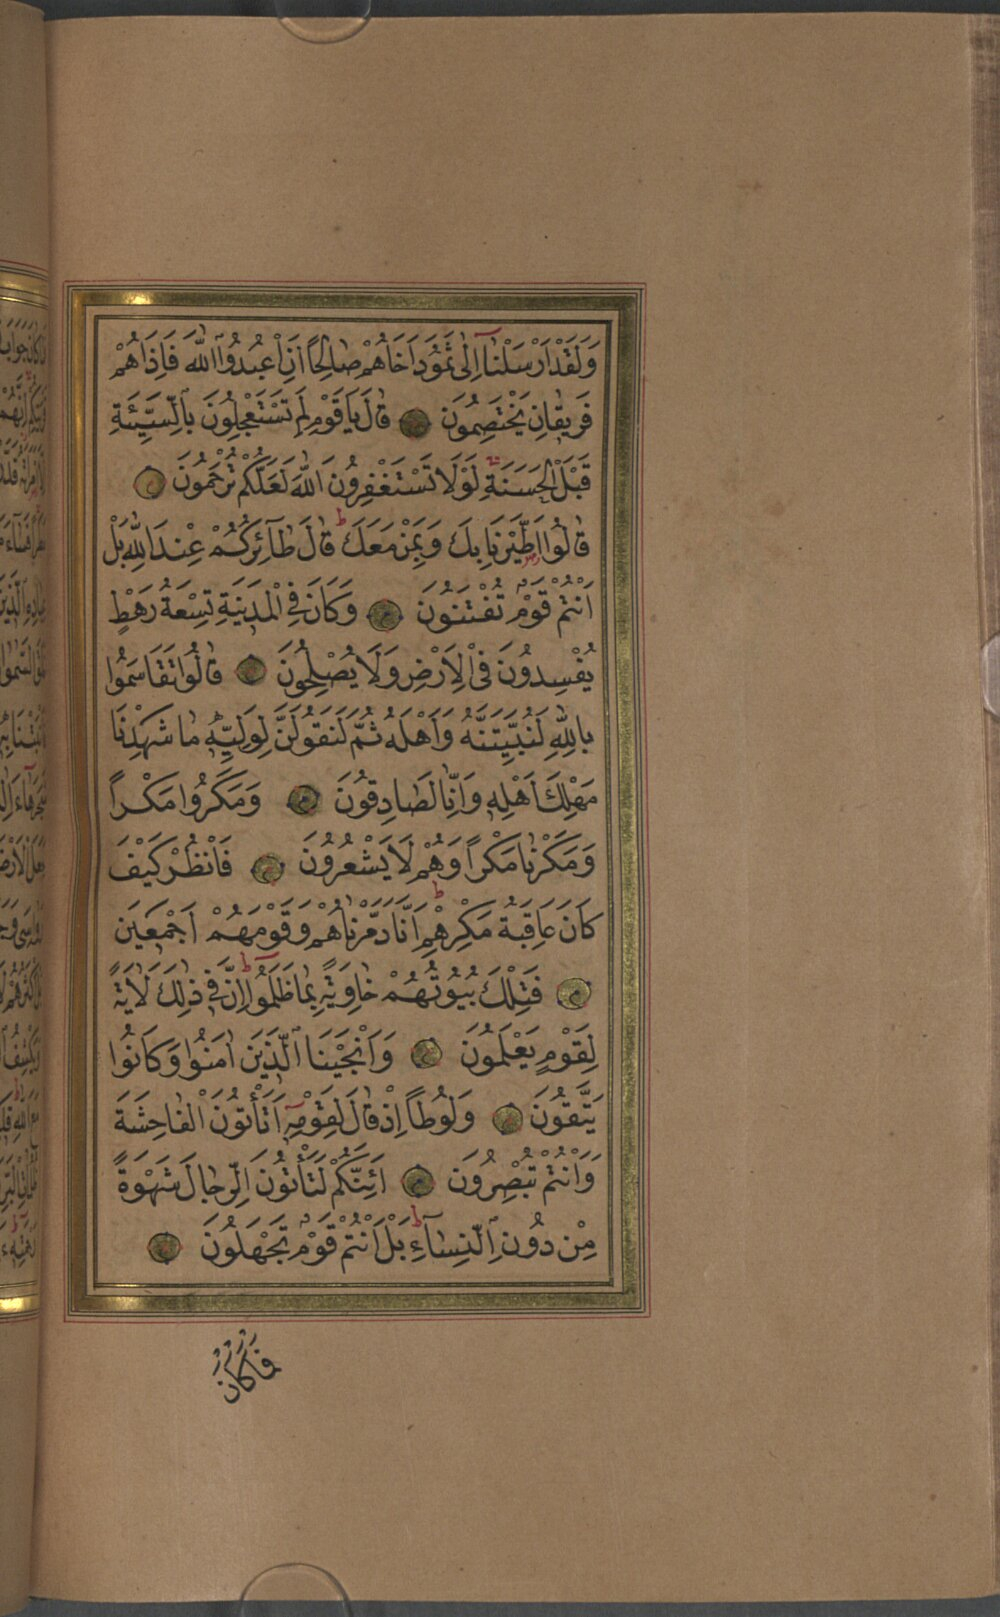 وَلَقَدْ اَرْسَلْنَٓا اِلٰى ثَمُودَ اَخَاهُمْ صَالِحًا اَنِ اعْبُدُوا اللّٰهَ فَاِذَا هُمْ
فَرِيقَانِ يَخْتَصِمُونَ قَالَ يَا قَوْمِ لِمَ تَسْتَعْجِلُونَ بِالسَّيِّئَةِ
قَبْلَ الْحَسَنَةِ لَوْلَا تَسْتَغْفِرُونَ اللّٰهَ لَعَلَّكُمْ تُرْحَمُونَ
قَالُوا اطَّيَّرْنَا بِكَ وَبِمَنْ مَعَكَ قَالَ طَٓائِرُكُمْ عِنْدَ اللّٰهِ بَلْ
اَنْتُمْ قَوْمٌ تُفْتَنُونَ وَكَانَ فِي الْمَدِينَةِ تِسْعَةُ رَهْطٍ
يُفْسِدُونَ فِي الْاَرْضِ وَلَا يُصْلِحُونَ قَالُوا تَقَاسَمُوا
بِاللّٰهِ لَنُبَيِّتَنَّهُ وَاَهْلَهُ ثُمَّ لَنَقُولَنَّ لِوَلِيِّهِ مَا شَهِدْنَا
مَهْلِكَ اَهْلِهِ وَاِنَّا لَصَادِقُونَ وَمَكَرُوا مَكْرًا
وَمَكَرْنَا مَكْرًا وَهُمْ لَا يَشْعُرُونَ فَانْظُرْ كَيْفَ
كَانَ عَاقِبَةُ مَكْرِهِمْ اَنَّا دَمَّرْنَاهُمْ وَقَوْمَهُمْ اَجْمَعِينَ
فَتِلْكَ بُيُوتُهُمْ خَاوِيَةً بِمَا ظَلَمُوا اِنَّ فِي ذٰلِكَ لَاٰيَةً
لِقَوْمٍ يَعْلَمُونَ وَاَنْجَيْنَا الَّذِينَ اٰمَنُوا وَكَانُوا
يَتَّقُونَ وَلُوطًا اِذْ قَالَ لِقَوْمِهِٓ اَتَأْتُونَ الْفَاحِشَةَ
وَاَنْتُمْ تُبْصِرُونَ اَئِنَّكُمْ لَتَأْتُونَ الرِّجَالَ شَهْوَةً
مِنْ دُونِ النِّسَٓاءِ بَلْ اَنْتُمْ قَوْمٌ تَجْهَلُونَ
فَمَا كَانَ